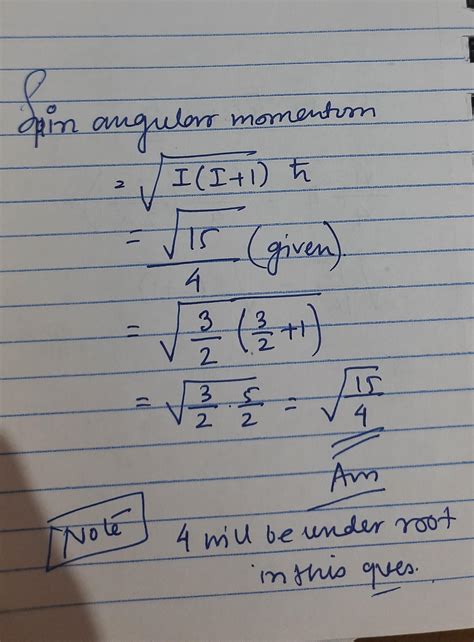 Spin angular momentum
= √I(I+1) ħ
= √15/4 (given).
= √3/2 (3/2+1)
= √3/2 · 5/2 = √15/4
Ans
Note 4 will be under root
in this ques.